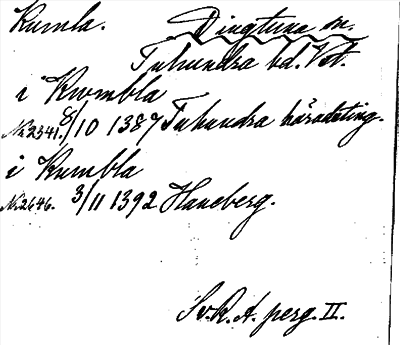 Kumla. Dingtuna sn.
Tuhundra hd. Vstm.
i Kwmbla
Nr 2341. 8/10 1387 Tuhundra häradsting.
i Kumbla
Nr 2646. 3/11 1392 Haneberg.
Sv. R. A. perg. II.